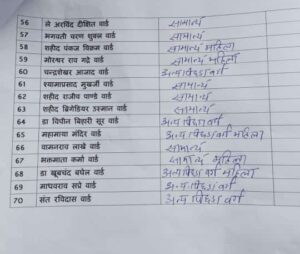 56 ले अरविंद दीक्षित वार्ड सामान्य
57 भगवती चरण शुक्ल वार्ड सामान्य
58 शहीद पंकज विक्रम वार्ड सामान्य महिला
59 मोरेश्वर राव गद्रे वार्ड सामान्य
60 चन्द्रशेखर आजाद वार्ड अन्य पिछड़ा वर्ग
61 श्यामाप्रसाद मुखर्जी वार्ड सामान्य
62 शहीद राजीव पाण्डे वार्ड सामान्य
63 शहीद ब्रिगेडियर उस्मान वार्ड सामान्य
64 डा विपीन बिहारी सूर वार्ड अन्य पिछड़ा वर्ग
65 महामाया मंदिर वार्ड अन्य पिछड़ा वर्ग महिला
66 वामनराव लाखे वार्ड सामान्य
67 भक्तमाता कर्मा वार्ड सामान्य महिला
68 डा खूबचंद बघेल वार्ड अन्य पिछड़ा वर्ग महिला
69 माधवराव सप्रे वार्ड अन्य पिछड़ा वर्ग
70 संत रविदास वार्ड अन्य पिछड़ा वर्ग